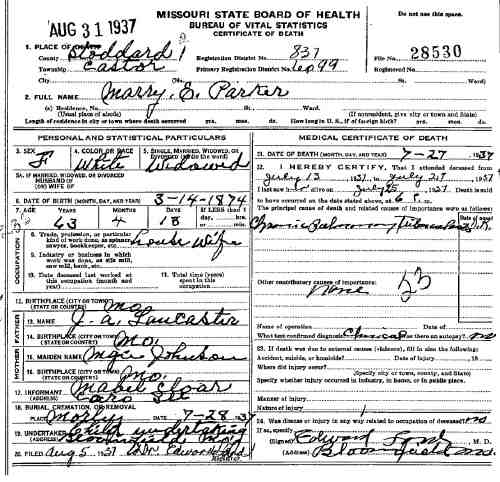 AUG 31 1937
MISSOURI STATE BOARD OF HEALTH
BUREAU OF VITAL STATISTICS
CERTIFICATE OF DEATH
Do not use this space.
1. PLACE OF DEATH
County Stoddard 1
Registration District No. 837
File No. 28530
Township Castor
Primary Registration District No. 6099
Registered No.
City No. St. Ward
2. FULL NAME Marry. E. Parker
(a) Residence, No. St. Ward.
(Usual place of abode) (If nonresident, give city or town and State)
Length of residence in city or town where death occurred yrs. mos. ds. How long in U. S., if of foreign birth? yrs. mos. ds.
PERSONAL AND STATISTICAL PARTICULARS
3. SEX F
4. COLOR OR RACE White
5. SINGLE, MARRIED, WIDOWED, OR DIVORCED (write the word) Widowed
5A. IF MARRIED, WIDOWED, OR DIVORCED
HUSBAND OF
(OR) WIFE OF
6. DATE OF BIRTH (MONTH, DAY, AND YEAR) 3-14-1874
7. AGE YEARS MONTHS DAYS If LESS than 1 day, hrs. or min.
63 4 18
OCCUPATION
8. Trade, profession, or particular kind of work done, as spinner, sawyer, bookkeeper, etc. House Wife
9. Industry or business in which work was done, as silk mill, saw mill, bank, etc.
10. Date deceased last worked at this occupation (month and year)
11. Total time (years) spent in this occupation
12. BIRTHPLACE (CITY OR TOWN) Mo
(STATE OR COUNTRY)
FATHER
13. NAME J. A. Lancaster
14. BIRTHPLACE (CITY OR TOWN) Mo.
(STATE OR COUNTRY)
MOTHER
15. MAIDEN NAME Johnson
16. BIRTHPLACE (CITY OR TOWN) Mo.
(STATE OR COUNTRY)
17. INFORMANT Mabel Cloar
(ADDRESS)
18. BURIAL, CREMATION, OR REMOVAL
PLACE DATE 7-28 1937
19. UNDERTAKER Undertaking
(ADDRESS) Bloomfield Mo
20. FILED Aug 5 1937
MEDICAL CERTIFICATE OF DEATH
21. DATE OF DEATH (MONTH, DAY, AND YEAR) 7-27-1937
22. I HEREBY CERTIFY, That I attended deceased from
July 13 1937, to July 27 1937
I last saw h alive on July 25 1937
to have occurred on the date stated above, at 6 P. m.
The principal cause of death and related causes of importance were as follows:
Chronic Pulmonary Tuberculosis
23
Other contributory causes of importance:
None
Name of operation Date of
What test confirmed diagnosis? Clinical Was there an autopsy? no
23. If death was due to external causes (violence), fill in also the following:
Accident, suicide, or homicide? Date of injury 19
Where did injury occur?
(Specify city or town, county, and State)
Specify whether injury occurred in industry, in home, or in public place.
Manner of injury
Nature of injury
24. Was disease or injury in any way related to occupation of deceased? no
If so, specify
(Signed) Edward M. D.
(Address) Bloomfield Mo.